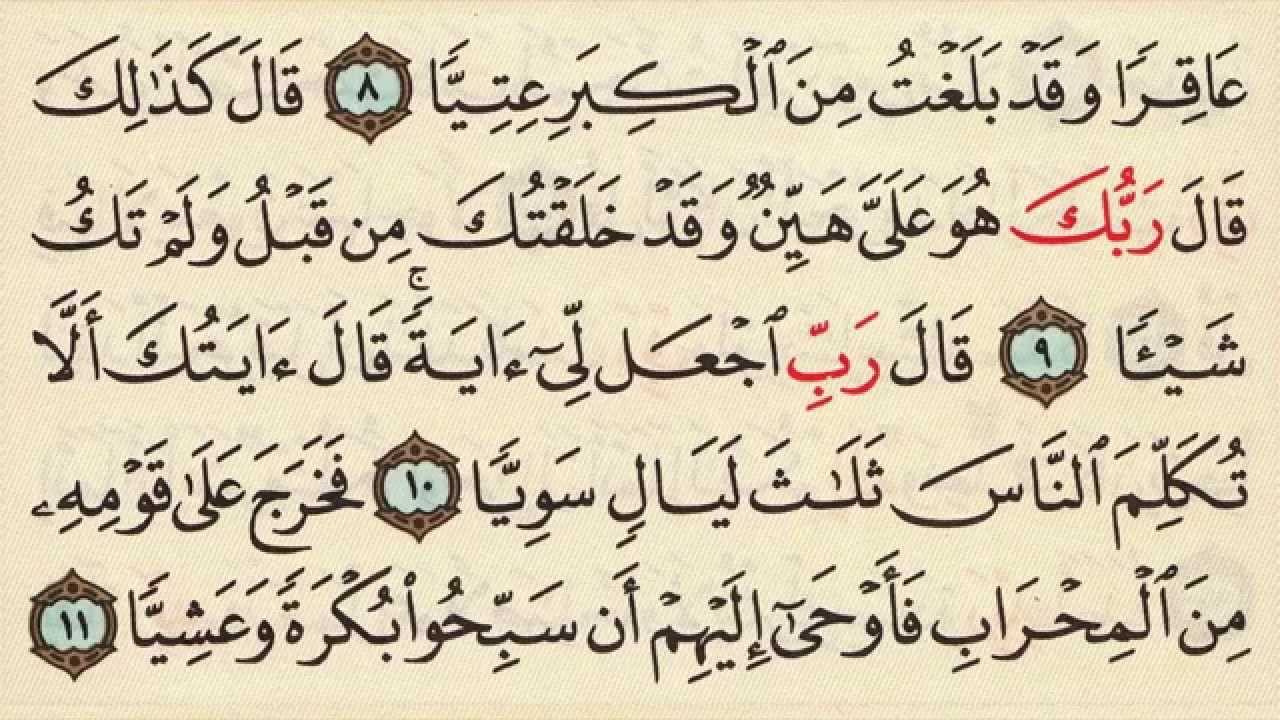 عَاقِرًا وَقَدْ بَلَغْتُ مِنَ ٱلْكِبَرِ عِتِيًّا ٨ قَالَ كَذَٰلِكَ
قَالَ رَبُّكَ هُوَ عَلَىَّ هَيِّنٌ وَقَدْ خَلَقْتُكَ مِن قَبْلُ وَلَمْ تَكُ
شَيْـًٔا ٩ قَالَ رَبِّ ٱجْعَل لِّىٓ ءَايَةً ۚ قَالَ ءَايَتُكَ أَلَّا
تُكَلِّمَ ٱلنَّاسَ ثَلَٰثَ لَيَالٍ سَوِيًّا ١٠ فَخَرَجَ عَلَىٰ قَوْمِهِۦ
مِنَ ٱلْمِحْرَابِ فَأَوْحَىٰٓ إِلَيْهِمْ أَن سَبِّحُوا۟ بُكْرَةً وَعَشِيًّا ١١